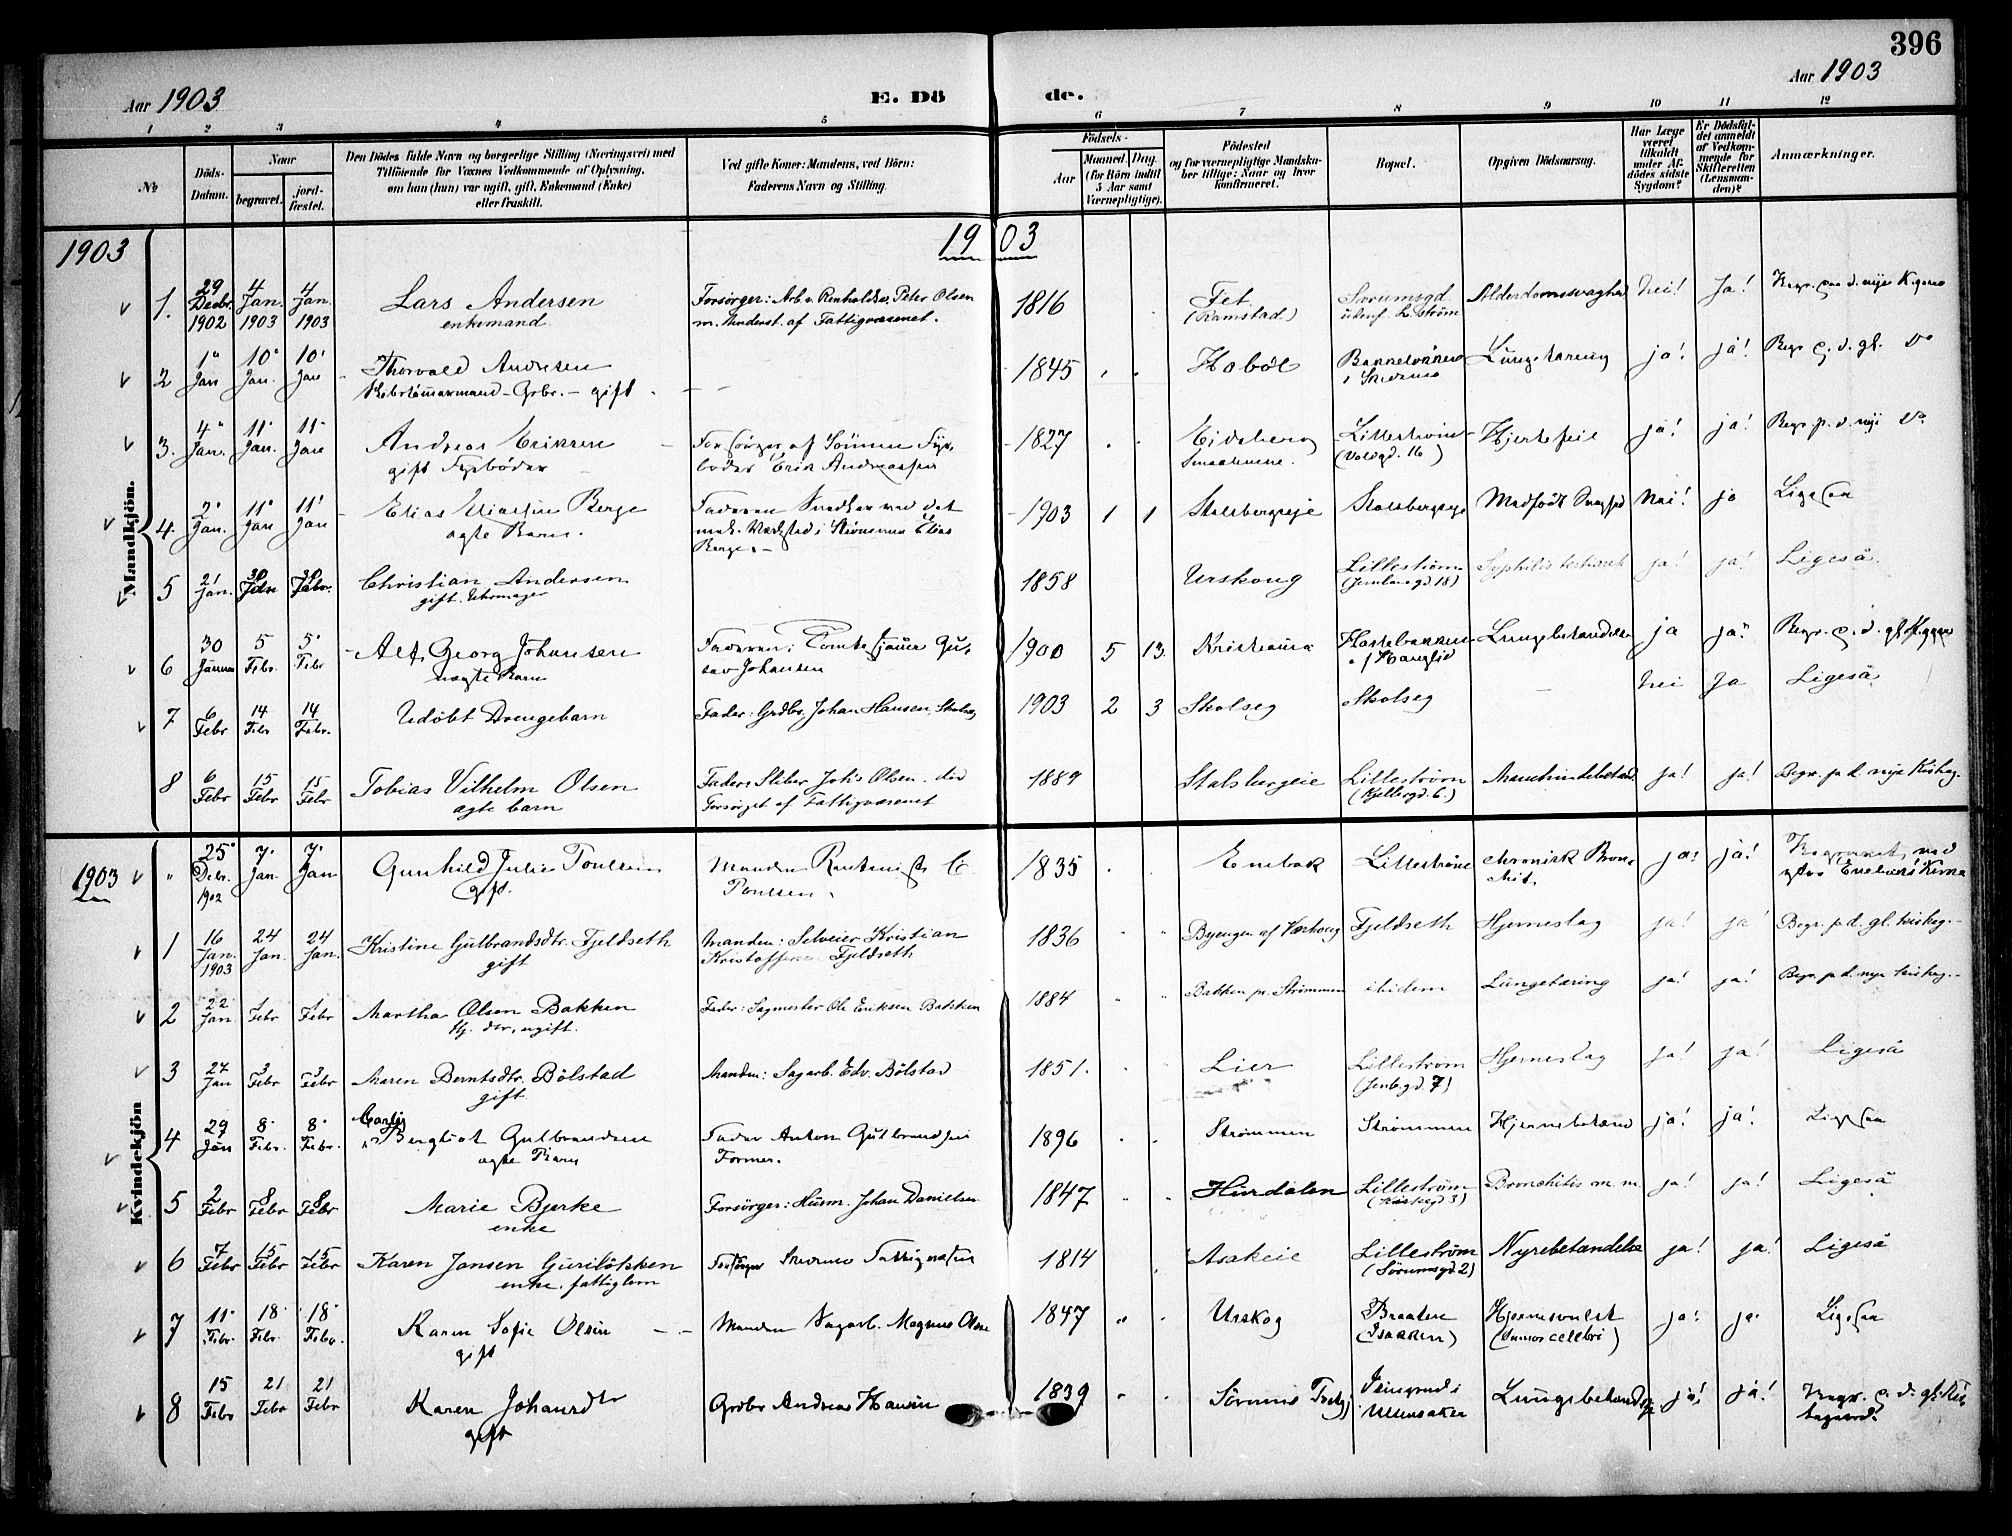 396
Aar 1903
E. Dö
de.
Aar 1903
1 2 3 4 5 6 7 8 9 10 11 12
№
Döds-Datum.
Naar
begravet.
jord-fæstet.
Den Dödes fulde Navn og borgerlige Stilling (Næringsvei) med
Tilföiende for Voxnes Vedkommende af Oplysning,
om han (hun) var ugift, gift, Enkemand (Enke)
eller fraskilt.
Ved gifte Koner: Mandens, ved Börn:
Faderens Navn og Stilling.
Födsels-
Aar
Maaned. Dag.
(for Börn indtil
5 Aar samt
Værnepligtige).
Födested
og for værnepligtige Mandska-
ber tillige: Naar og hvor
konfirmeret.
Bopæl.
Opgiven Dödsaarsag.
Har Læge
været
tilkaldt
under Af-
dödes sidste
Sygdom?
Er Dödsfal-
det anmeldt
af Vedkom-
mende for
Skifteretten
(Lensman-
den)?
Anmærkninger.
1903
1903
Mandkjön.
1. 29 Decbr. 1902 4 Jan. 1903 4 Jan. 1903 Lars Andersen enkemand Forsörger: Arb. v. Peter Olsen m. Underst. af Fattigvæsenet. 1816 Fet (Ramstad) Sørumsgd Alderdomssvaghed Nei! Ja!
2 1 Jan 10 Jan. 10 Jan Thorvald Andersen Grbr. - gift 1845 Hobøl Lungetæring ja! ja! Begr p. d. gl. do
3. 4 Jan. 11 Jan. 11 Jan Andreas Eriksen gift Fyrböder Forsörger af Sönnen Fyrböder Erik Andreassen 1827 Eidsberg Smaalenene. Lilleström (Voldgd. 16) Hjertefeil ja! ja! Begr. p. d. nye do
4. 2 Jan. 11 Jan 11 Jan Elias Berge ægte Barn. Faderen Snedker ved det mek. Værksted i Strömmen Elias Berge. 1903 1 1 Stalsbergeie Stalsbergeie Medfödt Svaghed Nei! ja Ligesaa
5 21 Jan. 30 Jan 30 Christian Andersen gift. Uhrmager 1858 Urskoug Lilleström (Jernbanegd 18) Syphilis tertiær ja! ja! Ligeså.
6 30 Januar 5 Febr. 5 Febr Alf Georg Johansen uægte Barn Faderen: Tomtesjauer Gustav Johansen 1900 5 13 Kristiania Lungebetændelse ja ja!
7 6 Febr 14 Febr 14 Febr. Udöbt Drengebarn Fader: Grdbr. Johan Hansen, Skolseg 1903 2 3 Skolseg Skolseg Nei Ja Ligeså
8 6 Febr 15 Febr 15 Febr Tobias Vilhelm Olsen ægte barn Fader: Sliber Johs Olsen. död Forsörget af Fattigvæsenet 1889 Stalsbergeie Lilleström (Kjellergd. 6.) ja! ja! Begr. p. d. nye Kirkeg.
Kvindekjön
1903
" 25 Dcbr. 1902 7 Jan. 7 Jan Gunhild Julie Poulsen gift. Manden Rentenist C. Poulsen. 1835 Enebak Lilleström chronisk Bronchit. ja! ja!
1 16 Jan. 1903 24 Jan. 24 Jan. Kristine Gulbrandsdtr. Fjeldseth gift Manden: Selveier Kristian Kristoffersen Fjeldseth 1836 Fjeldseth Hjerneslag ja! ja Begr. p. d. gl. kirkeg.
2 22 Jan 1 Febr 1 Febr Martha Olsen Bakken Hj. dtr, ugift. Fader: Sagmester Ole Eriksen Bakken 1884 Bakken pr. Strömmen ibidem Lungetæring ja! ja! Begr. p. d. nye kirkeg.
3 27 Jan 3 Febr 3 Febr Maren Berntsdtr. Bölstad gift Manden: Sagarb. Edv. Bölstad 1851. Lier Lilleström (Jenb.gd. 7) Hjerneslag ja! ja! Ligeså
4 29 Jan 8 Febr. 8 Febr. Bergliot Gulbrandsen ægte Barn Fader Anton Gulbrandsen Former. 1896 Strømmen Strømmen Hjernebetænd ja! ja! Ligesaa
5 2 Febr 8 Febr 8 Febr Marie Bjerke enke Forsörger: Husm. Johan Danielsen 1847 Hurdalen Lilleström Bronchitis m. m. ja! ja! Ligeså
6 7 Febr 15 Febr 15 Febr Karen Jansen Guriløkken enke, fattiglem Forsörger Fattigvæsen 1814 Asakeie Lilleström (Sörumsgd. 2) Nyrebetændelse ja! ja! Ligeså
7 11 Febr. 18 Febr. 18 Febr. Karen Sofie Olsen gift Manden Sagarb. Magnus Olsen 1847 Urskog Braaten (Isakken) Hjernesvulst ja! ja Ligesaa
8 15 Febr 21 Febr 21 Febr Karen Johansdtr gift Grdbr Andreas Hansen 1839 i Ullensaker Lungebetændelse ja! ja!